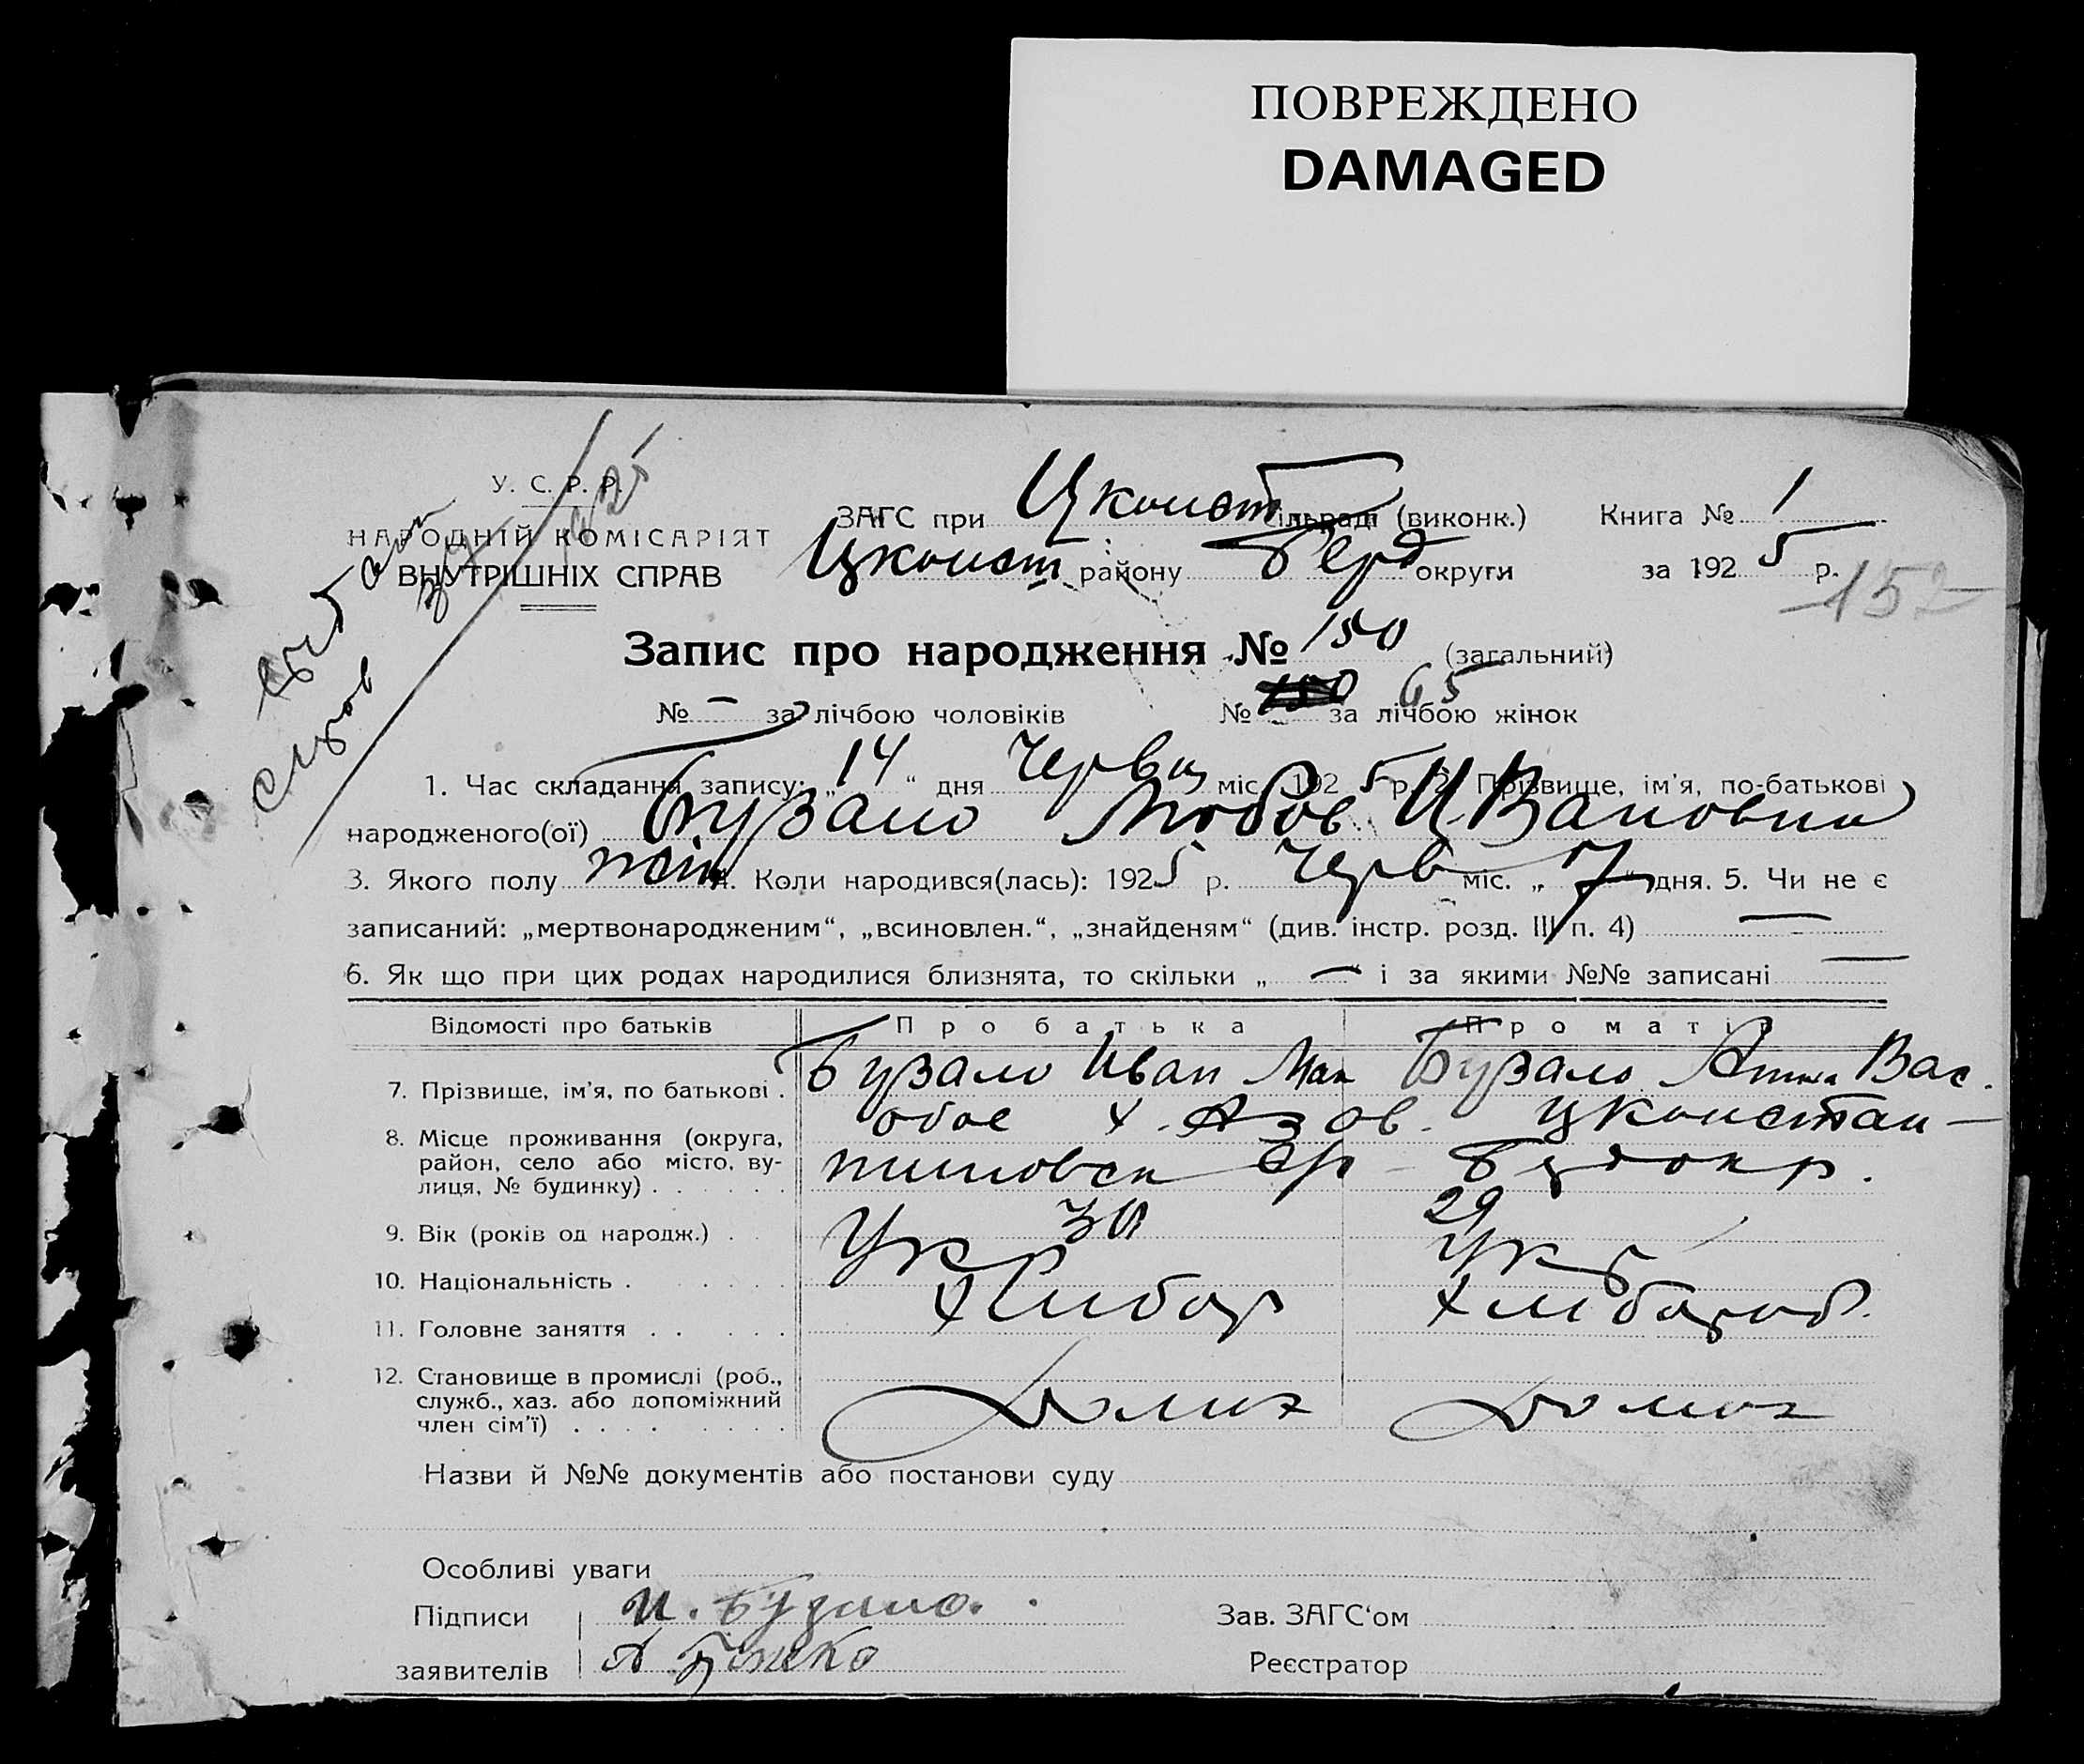 ПОВРЕЖДЕНО
DAMAGED
У. С. Р. Р.
НАРОДНІЙ КОМІСАРІЯТ
ВНУТРІШНІХ СПРАВ
ЗАГС при Цконст сільраді (виконк.) Книга № 1
Цконст району Берд округи за 1925 р.
152
Запис про народження № 150 (загальний)
№ — за лічбою чоловіків № 150 65 за лічбою жінок
1. Час складання запису: „14“ дня Червц міс. 1925 р. 2. Прізвище, ім'я, по-батькові
народженого(ої) Бузало Любов ИВановна
3. Якого полу жін 4. Коли народився(лась): 1925 р. Черв міс. „7“ дня. 5. Чи не є
записаний: „мертвонародженим“, „всиновлен.“, „знайденям“ (див. інстр. розд. III п. 4) —
6. Як що при цих родах народилися близнята, то скільки „—“ і за якими №№ записані —
Відомості про батьків Про батька Про матір
7. Прізвище, ім'я, по батькові . Бузало Иван Мак Бузало Анна Вас.
8. Місце проживання (округа, обое х. Азов. Цконстан-
район, село або місто, ву-
лиця, № будинку) . . . . . . тиновск
9. Вік (років од народж.) . 30 29
10. Національність . . . . Укр Укр
11. Головне заняття . . . . . Хлибор Хлибороб.
12. Становище в промислі (роб.,
служб., хаз. або допоміжний
член сім'ї) . . . . . . . . Домох Домох
Назви й №№ документів або постанови суду
Особливі уваги
Підписи И. Бузало. Зав. ЗАГС'ом
заявителів А Реєстратор